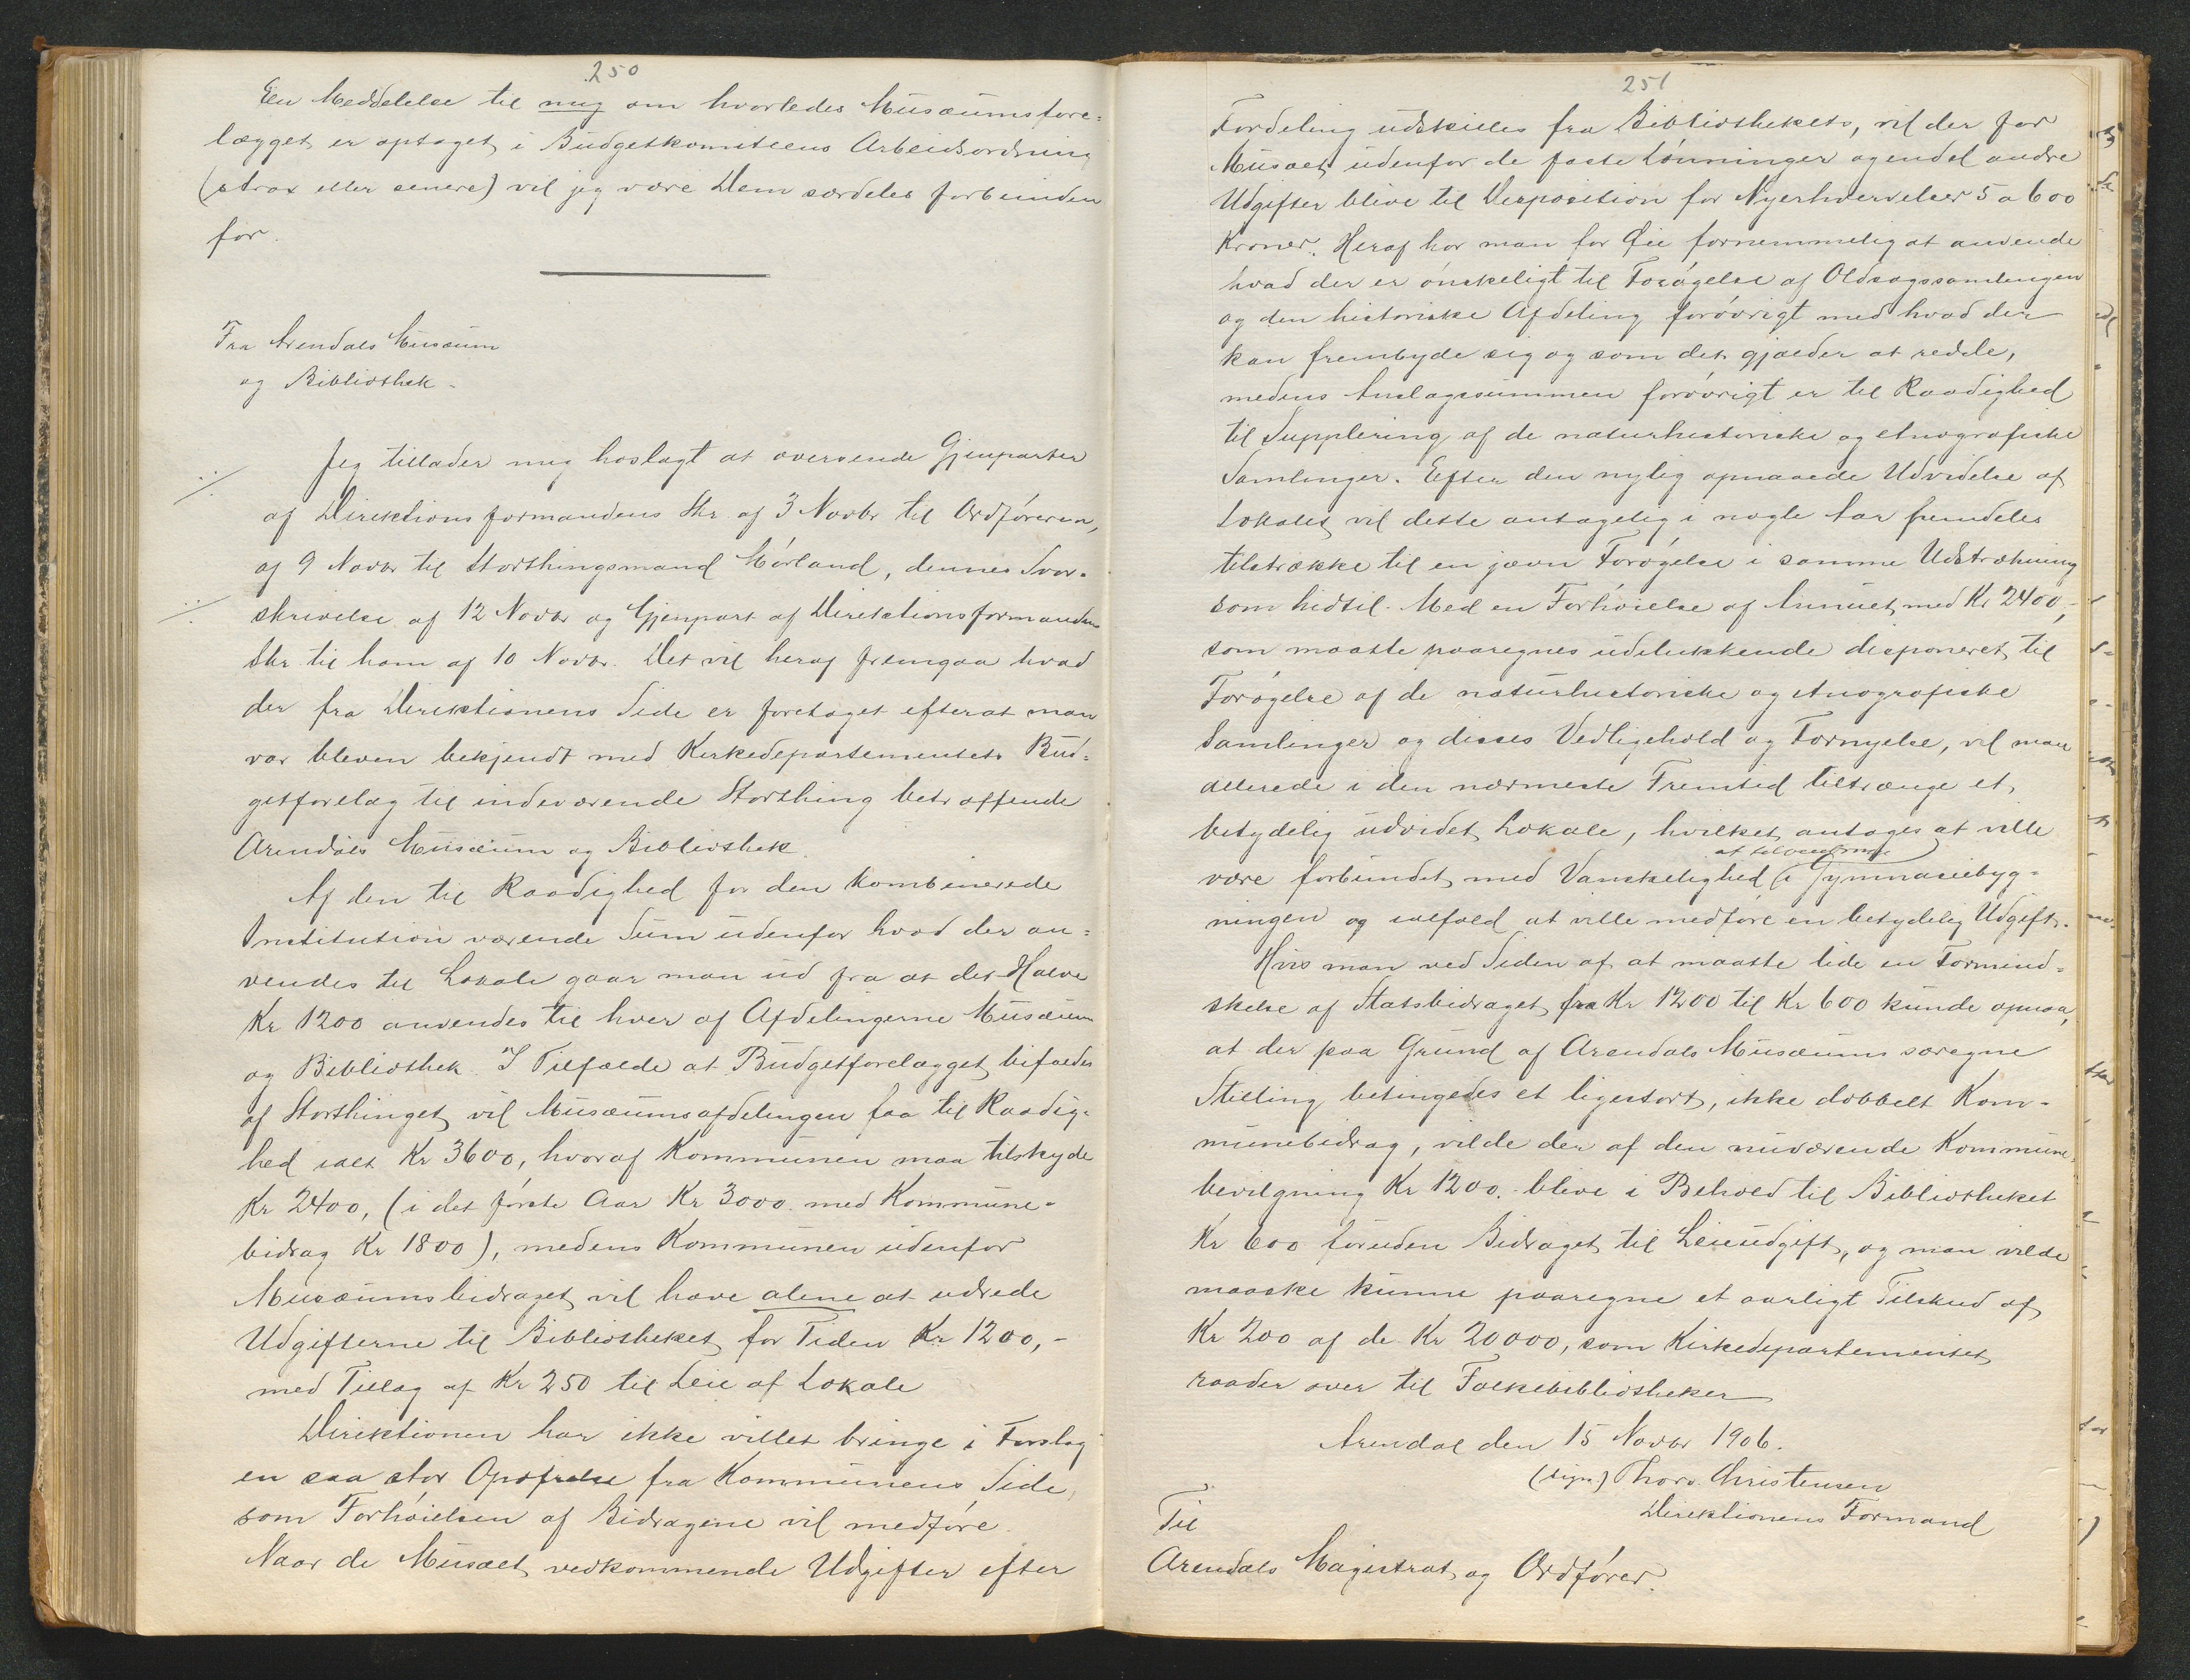 250
En Meddelelse til mig om hvorledes Musæumsfore=
lægget er optaget i Budgetkomiteens Arbeidsordning
(strax eller senere) vil jeg være Dem særdeles forbunden
for.
Fra Arendals Musæum
og Bibliothek.
Jeg tillader mig hoslagt at oversende Gjenparter
af Direktionsformandens Skr af 3 Novbr til Ordføreren,
af 9 Novbr til Storthingsmand Mørland, dennes Svar-
skrivelse af 12 Novbr og Gjenpart af Direktionsformandens
Skr. til ham af 10 Novbr. Det vil heraf fremgaa hvad
der fra Direktionens Side er foretaget efterat man
var bleven bekjendt med Kirkedepartementets Bud=
getforelæg til indeværende Storthing betræffende
Arendals Musæum og Bibliothek.
Af den til Raadighed for den kombinerede
Institution værende Sum udenfor hvad der an=
vendes til Lokale gaar man ud fra at det Halve
Kr 1200 anvendes til hver af Afdelingerne Musæum
og Bibliothek. I Tilfælde at Budgetforelægget bifaldes
af Storthinget vil Musæumsafdelingen faa til Raadig-
hed ialt Kr 3600, hvoraf Kommunen maa tilskyde
Kr 2400, (i det første Aar Kr 3000. med Kommune-
bidrag Kr 1800), medens Kommunen udenfor
Musæumsbidraget vil have alene at udrede
Udgifterne til Bibliotheket for Tiden Kr 1200,-
med Tillæg af Kr 250 til Leie af Lokale
Direktionen har ikke villet bringe i Forslag
en saa stor Opofrelse fra Kommunens Side,
som Forhøielsen af Bidragene vil medføre.
Naar de Musæet vedkommende Udgifter efter
251
Fordeling udskilles fra Bibliothekets, vil der for
Musæet udenfor de faste Lønninger og endel andre
Udgifter blive til Disposition for Nyerhvervelser 5 a 600
Kroner. Heraf har man for Øie fornemmelig at anvende
hvad der er ønskeligt til Forøgelse af Oldsagssamlingen
og den historiske Afdeling forøvrigt med hvad der
kan frembyde sig og som det gjælder at redde,
medens Anslagssummen forøvrigt er til Raadighed
til Supplering af de naturhistoriske og etnografiske
Samlinger. Efter den nylig opnaaede Udvidelse af
Lokalet vil dette antagelig i nogle Aar fremdeles
tilstrække til en jævn Forøgelse i samme Udstrækning
som hidtil. Med en Forhøielse af Annuet med Kr 2400,-
som maatte paaregnes udelukkende disponeret til
Forøgelse af de naturhistoriske og etnografiske
Samlinger og disses Vedligehold og Fornyelse, vil man
allerede i den nærmeste Fremtid tiltrænge et
betydelig udvidet Lokale, hvilket antages at ville
være forbundet med Vanskelighed i Gymnasiebyg=
ningen og ialfald at ville medføre en betydelig Udgift.
Hvis man ved Siden af at maatte lide en Formind=
skelse af Statsbidraget fra Kr 1200 til Kr 600 kunde opnaa,
at der paa Grund af Arendals Musæums særegne
Stilling betingedes et ligestort, ikke dobbelt Kom-
munebidrag, vilde der af den nuværende Kommune-
bevilgning Kr 1200. blive i Behold til Bibliotheket
Kr 600 foruden Bidraget til Leieudgift, og man vilde
maaske kunne paaregne et aarligt Tilskud af
Kr 200 af de Kr 20000, som Kirkedepartementet
raader over til Folkebibliotheker
Arendal den 15 Novbr 1906.
(sign.) Thorv. Christensen
Direktionens Formand
Til
Arendals Magistrat og Ordfører.